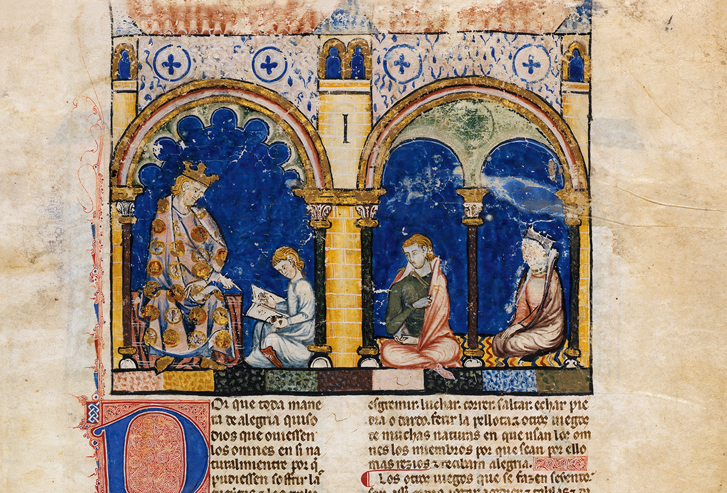 I
Or que toda mane
ra de alegria quiso
dios que ouiessen
los omnes en si na
turalmientre por q̃
pudiessen soffrir las
esgremir. luchar. correr. saltar. echar pie
dra o dardo. ferir la pellota. ⁊ otros iuegos
de muchas naturas en que usan los om
nes los miembros por que sean por ello
mas rezios ⁊ reciban alegria.
Los otros iuegos que se fazen seyendo.